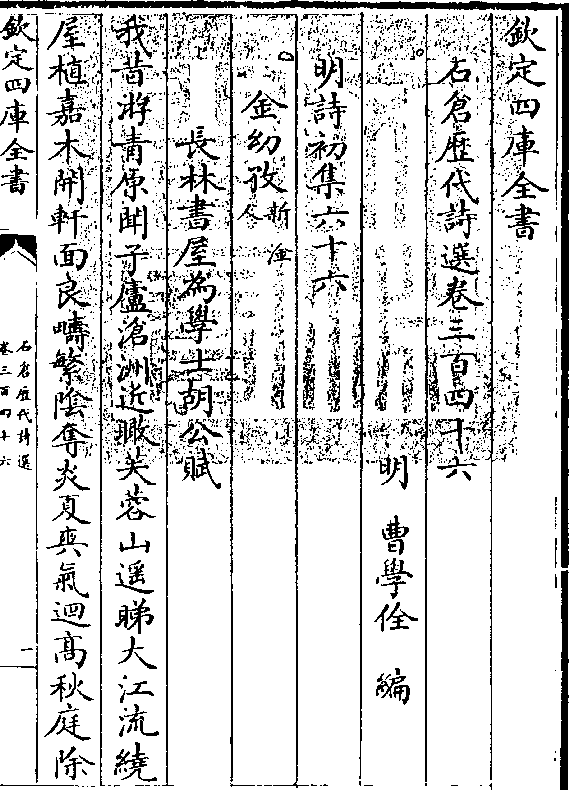 欽定四庫全書
石倉歷代詩選卷三百四十六
明　曹學佺　編
明詩初集六十六
金幼孜新淦人
長林書屋為學士胡公賦
我昔游青原聞子廬滄洲近瞰芙蓉山遥睇大江流繞
屋植嘉木開軒面良疇繁陰奪炎夏爽氣迴高秋庭除
欽定四庫全書
石倉歷代詩選
卷三百四十六
一